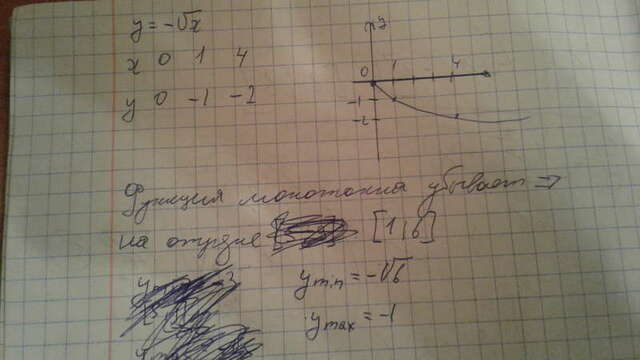 y = -√x
x 0 1 4
y 0 -1 -2
y
0 1 4
-1
-2
Функция монотонно убывает ⇒
на отрезке [1; 6]
y min = -√6
y max = -1